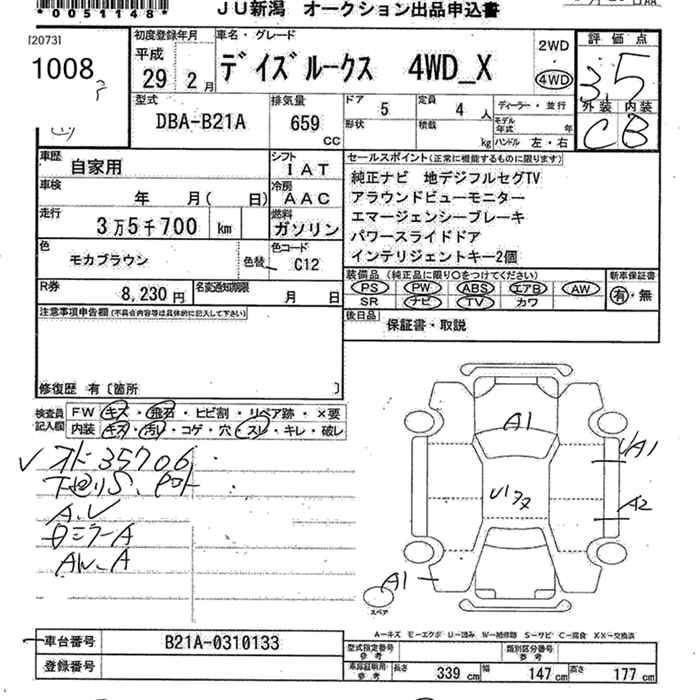 *0051148*
JU新潟 オークション出品申込書
[2073]
1008
初度登録年月
平成
29年 2月
車名・グレード
デイズルークス 4WD_X
2WD
4WD
評価点
3.5
外装 内装
C B
型式
DBA-B21A
排気量
659 cc
ドア 5
定員 4人
形状
積載 kg
ディーラー・並行
モデル年式 年
ハンドル 左・右
車歴
自家用
シフト
IAT
車検
年 月( 日)
冷房
AAC
走行
3万5千700 km
燃料
ガソリン
色
モカブラウン
色替
色コード
C12
R券
8,230円
名変通知期限
月 日
セールスポイント(正常に機能するものに限ります)
純正ナビ 地デジフルセグTV
アラウンドビューモニター
エマージェンシーブレーキ
パワースライドドア
インテリジェントキー2個
装備品(純正品に限り〇をつけてください)
PS PW ABS エアB AW
SR ナビ TV カワ
新車保証書
有・無
後日品
保証書・取説
注意事項申告欄(不具合内容等は具体的に記入して下さい)
修復歴 有〔箇所 〕
検査員記入欄
FW キズ・飛石・ヒビ割・リペア跡・×要
内装 キズ・汚れ・コゲ・穴・スレ・キレ・破レ
オド35706
下廻りS、
A.V
AW.A
A1
A1
A2
U1
A1
スペア
A-キズ E-エクボ U-凹み W-補修跡 S-サビ C-腐食 XX-交換済
車台番号
B21A-0310133
登録番号
型式指定番号
参考
類別区分番号
参考
車庫証明用
参考
長さ 339 cm
幅 147 cm
高さ 177 cm